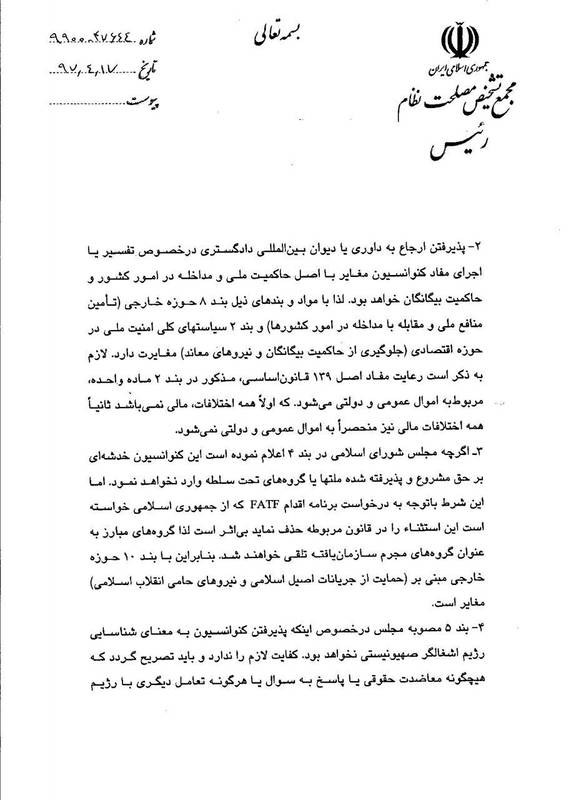 بسمه تعالی
جمهوری اسلامی ایران
مجمع تشخیص مصلحت نظام
رئیس
شماره ۹۹۰۰۰۴۷۶۴۴
تاریخ ۹۷،۴،۱۷
پیوست
۲- پذیرفتن ارجاع به داوری یا دیوان بین‌المللی دادگستری درخصوص تفسیر یا
اجرای مفاد کنوانسیون مغایر با اصل حاکمیت ملی و مداخله در امور کشور و
حاکمیت بیگانگان خواهد بود. لذا با مواد و بندهای ذیل بند ۸ حوزه خارجی (تأمین
منافع ملی و مقابله با مداخله در امور کشورها) و بند ۲ سیاستهای کلی امنیت ملی در
حوزه اقتصادی (جلوگیری از حاکمیت بیگانگان و نیروهای معاند) مغایرت دارد. لازم
به ذکر است رعایت مفاد اصل ۱۳۹ قانون‌اساسی، مذکور در بند ۲ ماده واحده،
مربوط‌به اموال عمومی و دولتی می‌شود. که اولاً همه اختلافات، مالی نمی‌باشد ثانیاً
همه اختلافات مالی نیز منحصراً به اموال عمومی و دولتی نمی‌شود.
۳- اگرچه مجلس شورای اسلامی در بند ۴ اعلام نموده است این کنوانسیون خدشه‌ای
بر حق مشروع و پذیرفته شده ملتها یا گروه‌های تحت سلطه وارد نخواهد نمود. اما
این شرط باتوجه به درخواست برنامه اقدام FATF که از جمهوری اسلامی خواسته
است این استثناء را در قانون مربوطه حذف نماید بی‌اثر است لذا گروه‌های مبارز به
عنوان گروه‌های مجرم سازمان‌یافته تلقی خواهند شد. بنابراین با بند ۱۰ حوزه
خارجی مبنی بر (حمایت از جریانات اصیل اسلامی و نیروهای حامی انقلاب اسلامی)
مغایر است.
۴- بند ۵ مصوبه مجلس درخصوص اینکه پذیرفتن کنوانسیون به معنای شناسایی
رژیم اشغالگر صهیونیستی نخواهد بود. کفایت لازم را ندارد و باید تصریح گردد که
هیچگونه معاضدت حقوقی یا پاسخ به سوال یا هرگونه تعامل دیگری با رژیم